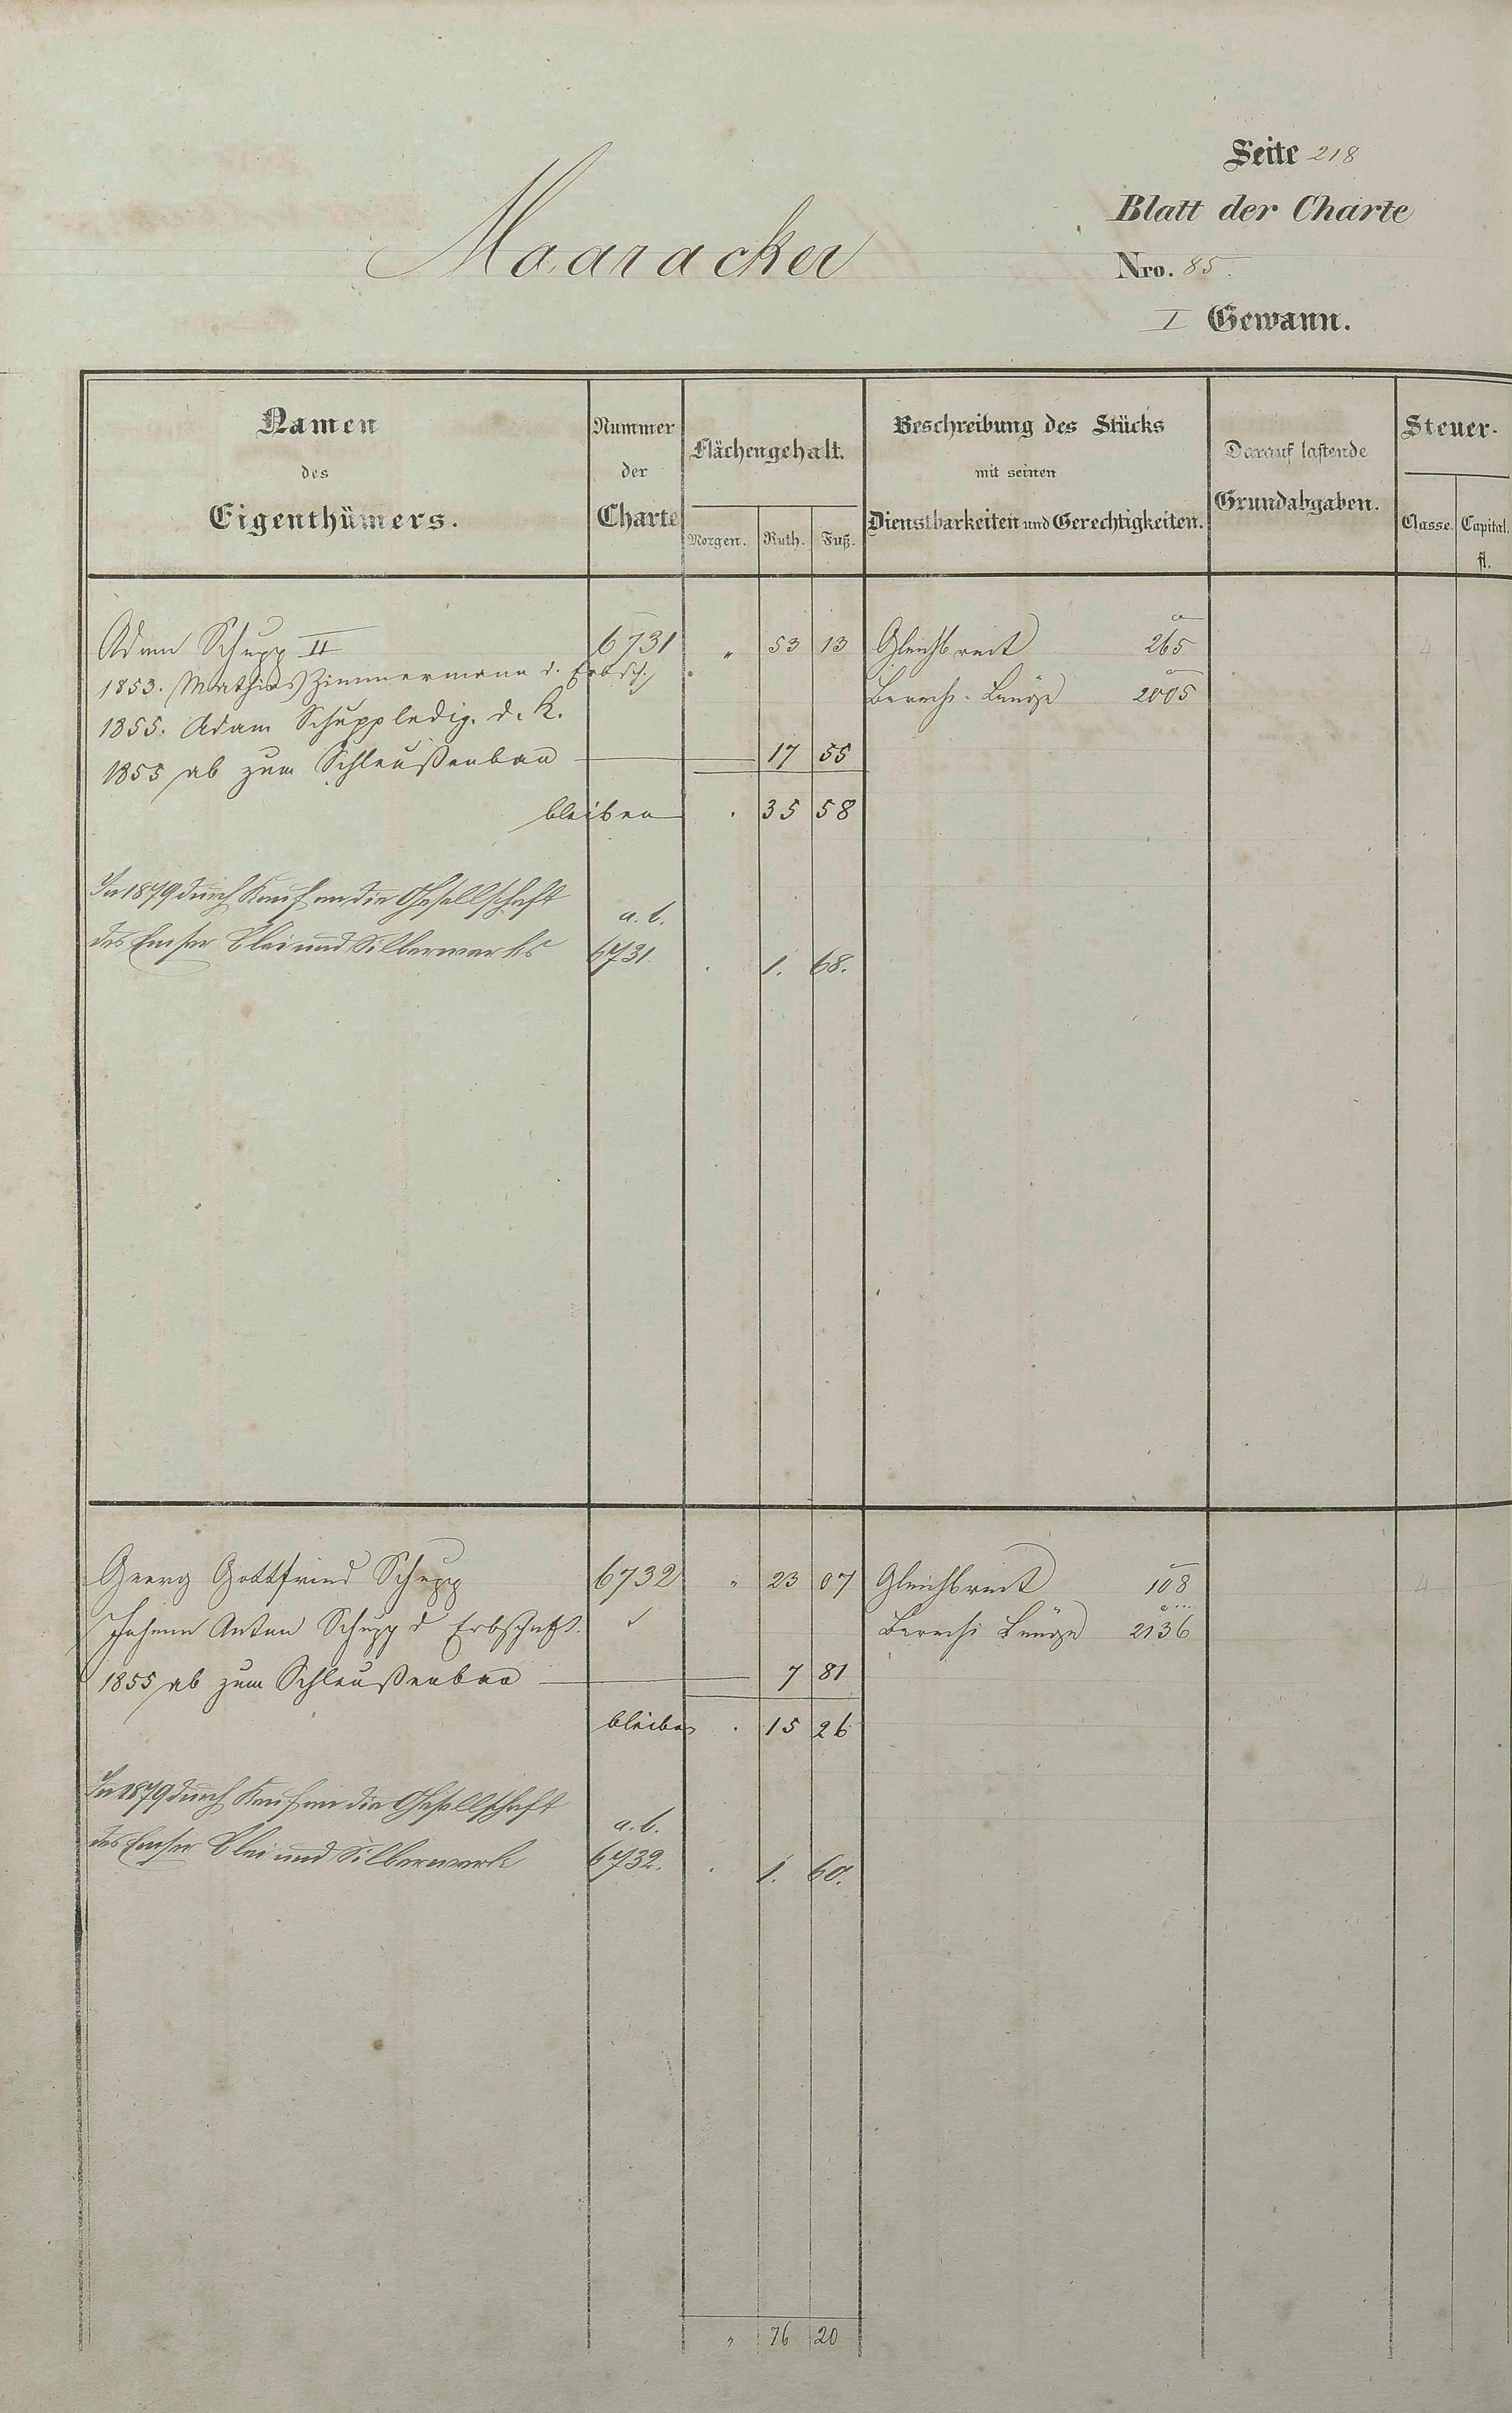 Seite 218
Blatt der Charte
Maaracker
Nro. 85.
I Gewann.
Namen des Eigenthümers.
Nummer der Charte
Flächengehalt.
Morgen. Ruth. Fuß.
Beschreibung des Stücks mit seinen Dienstbarkeiten und Gerechtigkeiten.
Darauf lastende Grundabgaben.
Steuer-
Classe. Capital. fl.
Adam Schupp II 6731 " 53 13 Gleichbreit 265 4
1853. Mathias Zimmermann d. Erbsch. Berech. Länge 2005
1855. Adam Schupp ledig. d. K.
1855 ab zum Schleußenbau 17 55
bleiben . 35 58
In 1879 durch Kauf an die Gesellschaft a. b.
des Emser Blei und Silberwerks 6731. . 1. 68.
Georg Gottfried Schupp 6732 " 23 07 Gleichbreit 108 4
Johann Anton Schupp d Erbschaft. Berech Länge 2136
1855 ab zum Schleußenbau 7 81
bleiben . 15 26
In 1879 durch Kauf an die Gesellschaft a. b.
des Emser Blei und Silberwerk 6732. . 1. 60.
" 76 20